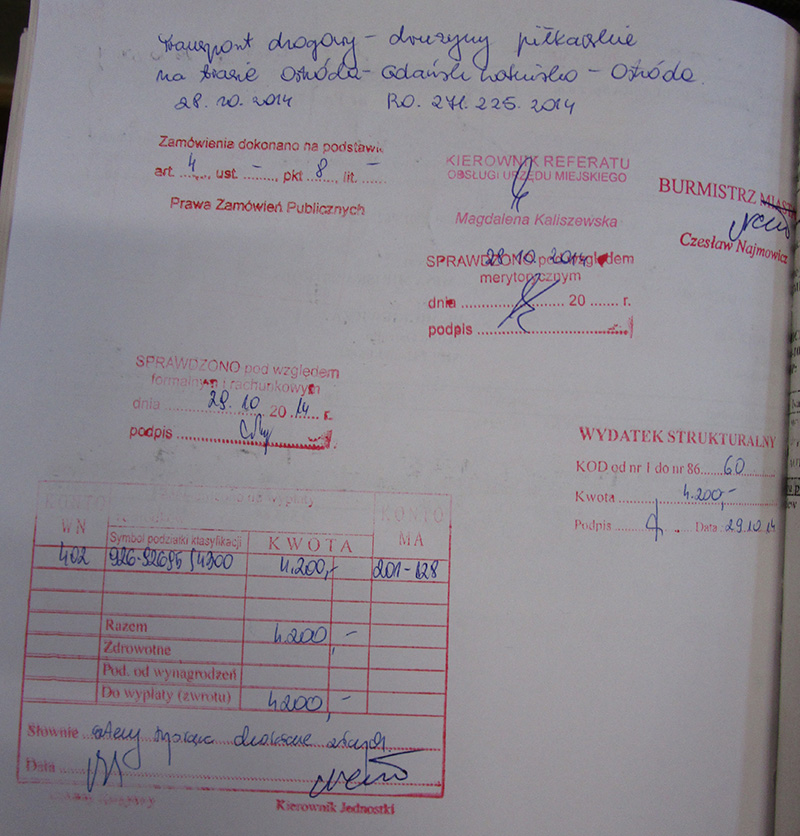 Transport drogowy – drużyny piłkarskie
na trasie Ostróda – Gdańsk lotnisko – Ostróda.
28.10.2014 RO. 271.225.2014
Zamówienia dokonano na podstawie
art. 4 , ust. – , pkt 8 , lit. –
Prawa Zamówień Publicznych
KIEROWNIK REFERATU
OBSŁUGI URZĘDU MIEJSKIEGO
Magdalena Kaliszewska
BURMISTRZ MIASTA
Czesław Najmowicz
SPRAWDZONO pod względem
merytorycznym
28.10.2014
dnia ........ 20 ....... r.
podpis ........
SPRAWDZONO pod względem
formalnym i rachunkowym
dnia 29.10 20 14 r.
podpis ........
WYDATEK STRUKTURALNY
KOD od nr 1 do nr 86 60
Kwota 4.200,-
Podpis ........ Data : 29.10.14
KONTO WN
Symbol podziałki klasyfikacji
KWOTA
KONTO MA
402 926-92695 §4300 4.200,- 201-128
Razem 4.200,-
Zdrowotne
Pod. od wynagrodzeń
Do wypłaty (zwrotu) 4200,-
Słownie cztery tysiące dwieście złotych
Data ........
Kierownik Jednostki